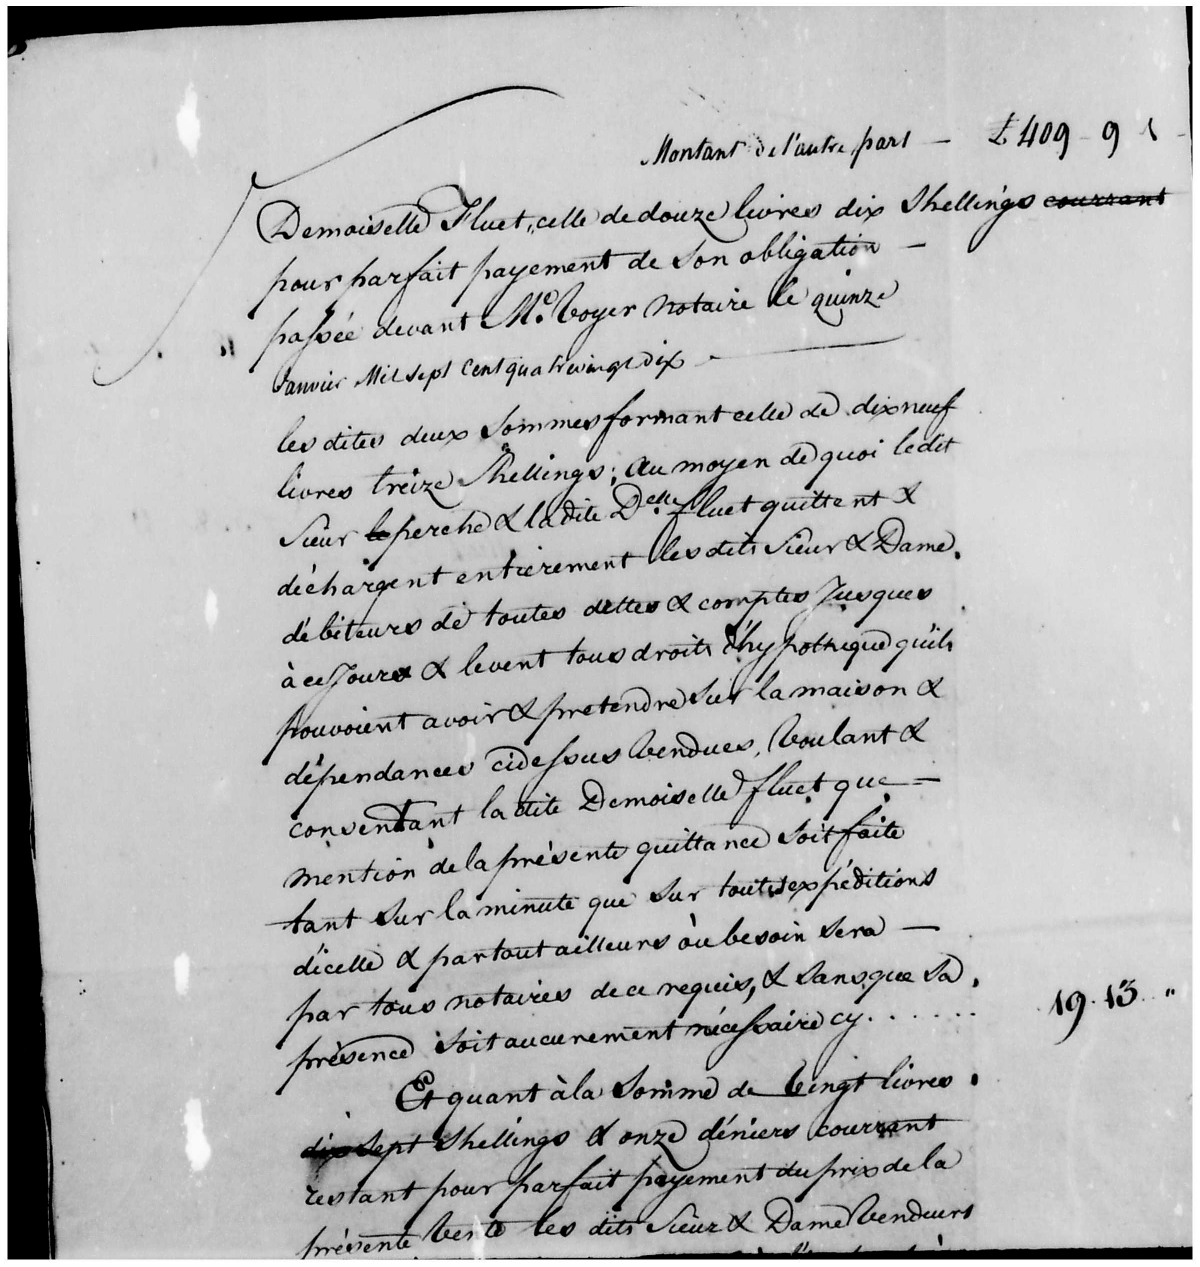 Montant de l'autre part — £ 409 - 9
Demoiselle Fluet, celle de douze livres dix Shellings courrant
pour parfait payement de Son obligation —
passée devant Me. Voyer Notaire le quinze
Janvier Mil sept Cent quatrevingt dix —
les dites deux Sommes formant celle de dixneuf
livres treize Shellings; au moyen de quoi ledit
Sieur leperche & ladite Delle. fluet quittent &
déchargent entierement lesdits Sieur & Dame
débiteurs de toutes dettes & comptes Jusques
à ce Jour & levent tous droits d'hypotheque qu'ils
pouvoient avoir & pretendre Sur la maison &
dépendances cidessus Vendues, Voulant &
consentant la dite Demoiselle fluet que —
mention de la présente quittance Soit faite
tant Sur la minute que Sur toutes expéditions
d'icelle & partout ailleurs où besoin Sera —
par tous notaires de ce requis, & Sans que Sa
présence Soit aucunement nécessaire cy . . . . . . 19. 13. "
Et quant à la Somme de Vingt livres
dix Sept Shellings & onze déniers courrant
restant pour parfait payement du prix de la
présente Vente les dits Sieur & Dame Vendeurs